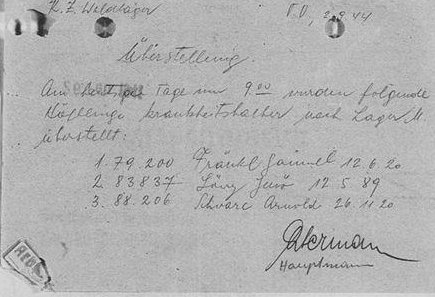 K.Z. Waldlager
T.O., 2.9.44
Überstellung.
Am heutigen Tage um 9.00 wurden folgende
Häftlinge krankheitshalber nach Lager M
überstellt:
1. 79.200 Fränkl 12.6.20
2. 83837 Jenö 12 5.89
3. 88.206 Schvarc Arnold 26.11.20
Hauptmann